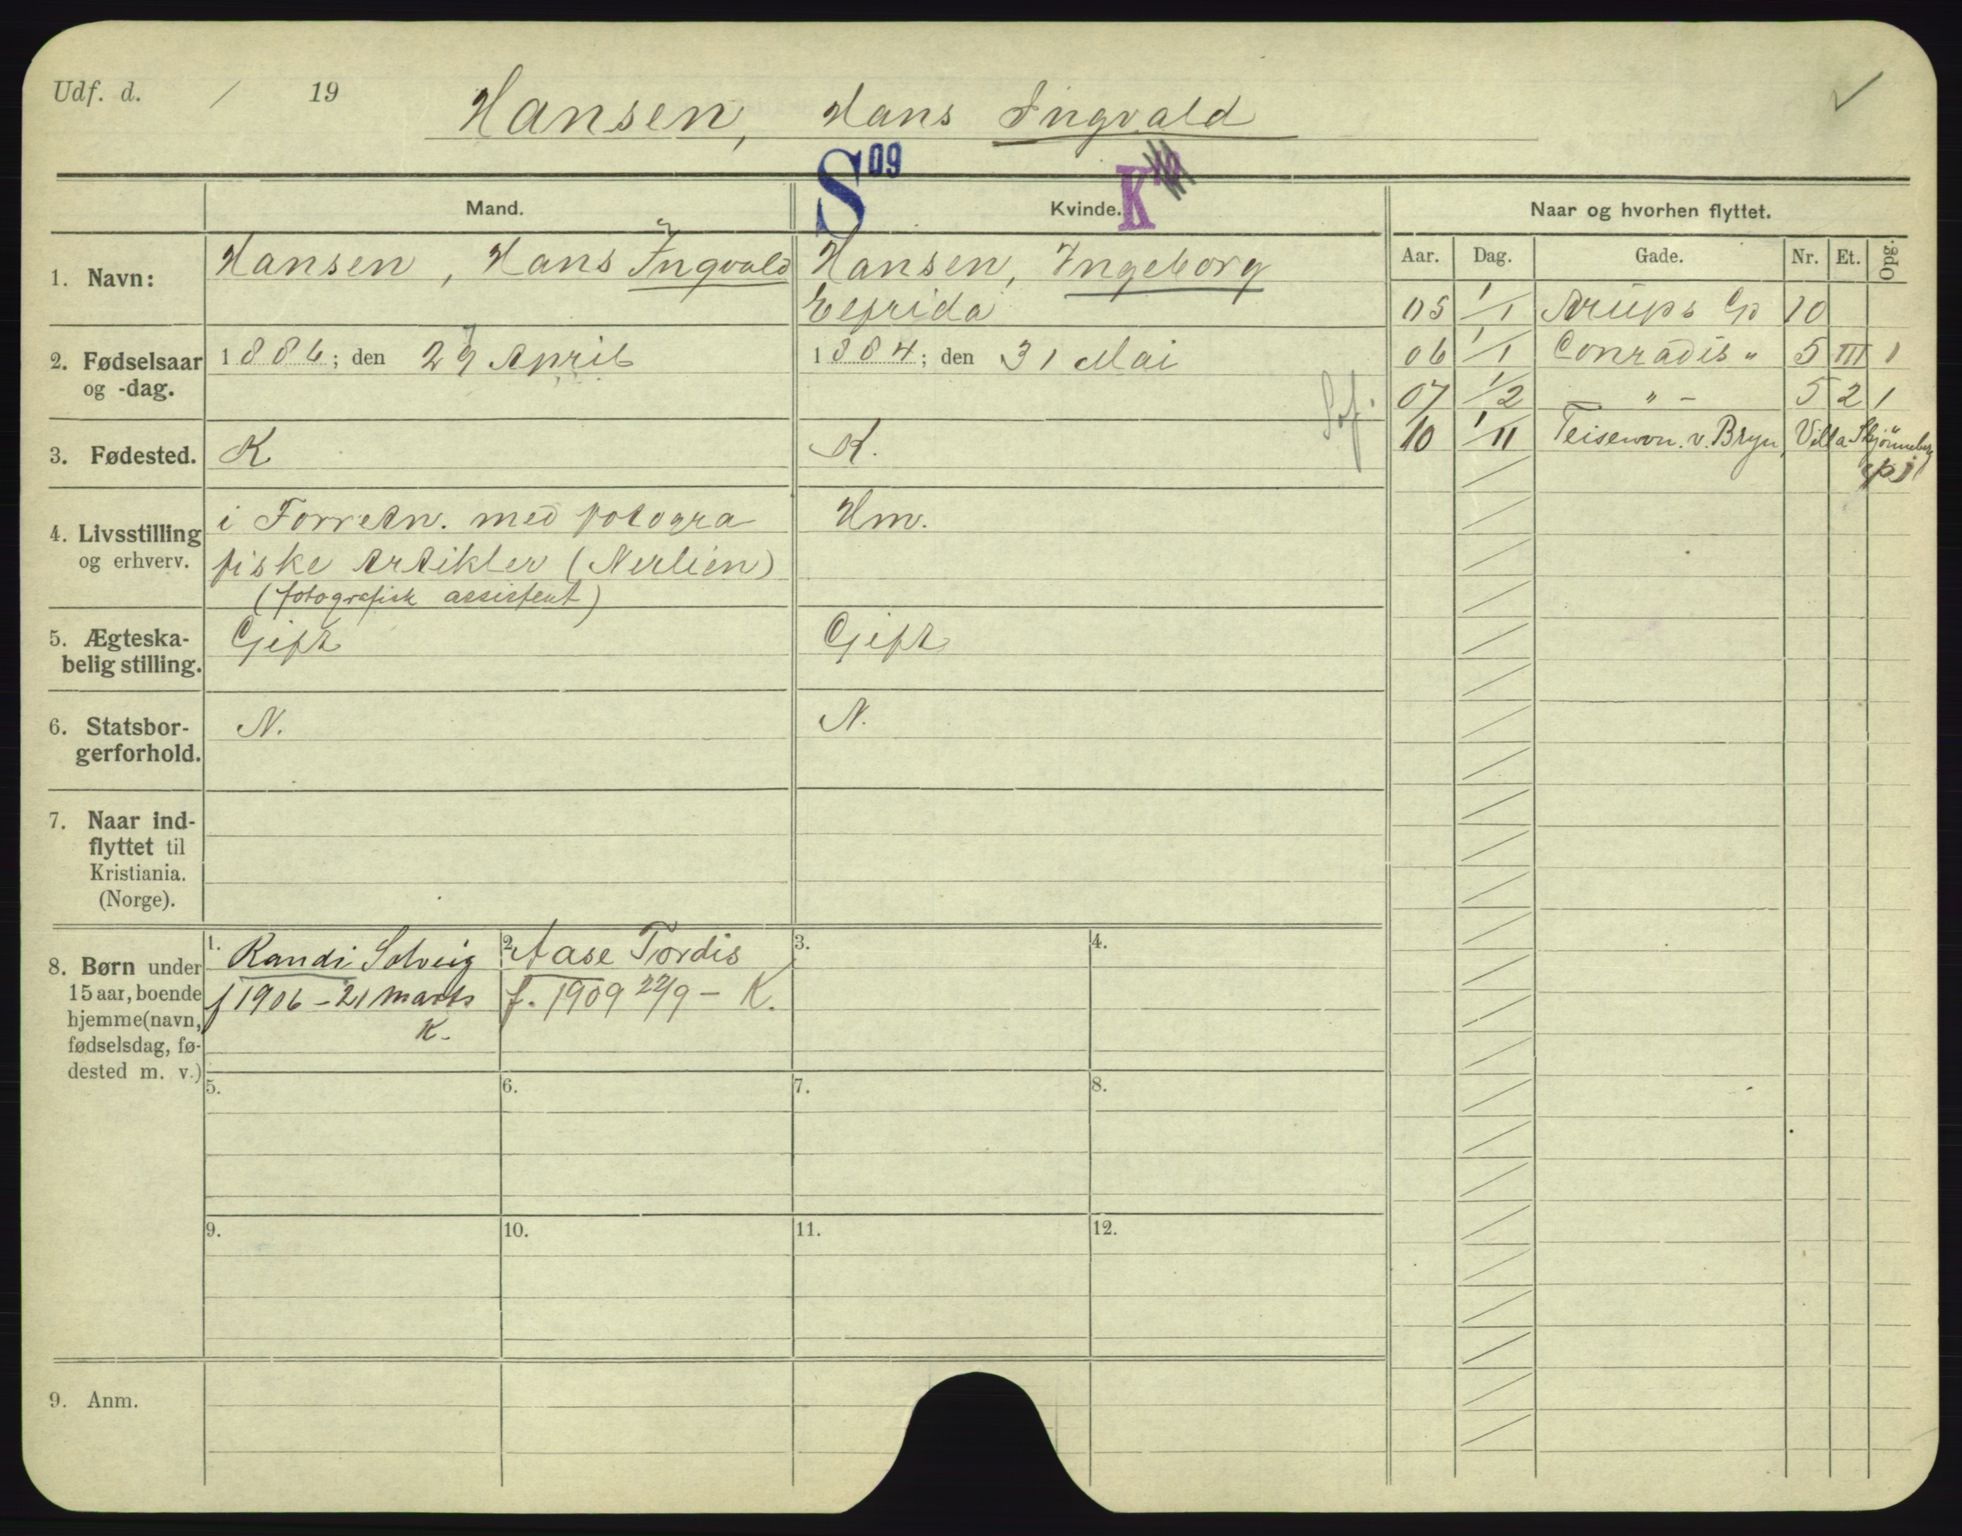 Udf. d. / 19
Hansen, Hans Ingvald
S 09
K
Mand.
Kvinde.
Naar og hvorhen flyttet.
Aar. Dag. Gade. Nr. Et. Opg.
1. Navn:
Hansen, Hans Ingvald
Hansen, Ingeborg
Elfrida
05 1/1 Arups Gd 10
2. Fødselsaar
og -dag.
1886; den 27 April
1884; den 31 Mai
06 1/1 Conradis " 5 III 1
07 1/2 " - 5 2 1
3. Fødested.
K
K.
10 1/11 Teisenvn. v. Bryn, Villa
4. Livsstilling
og erhverv.
i Forretn. med fotogra
fiske Artikler (Nerlien)
(fotografisk assistent)
Hm.
5. Ægteska-
belig stilling.
Gift
Gift
6. Statsbor-
gerforhold.
N.
N.
7. Naar ind-
flyttet til
Kristiania.
(Norge).
8. Børn under
15 aar, boende
hjemme (navn,
fødselsdag, fø-
dested m. v.)
1. Randi Solveig
f 1906 - 21 marts
K.
2. Aase Tordis
f. 1909 22/9 - K.
3.
4.
5.
6.
7.
8.
9.
10.
11.
12.
9. Anm.